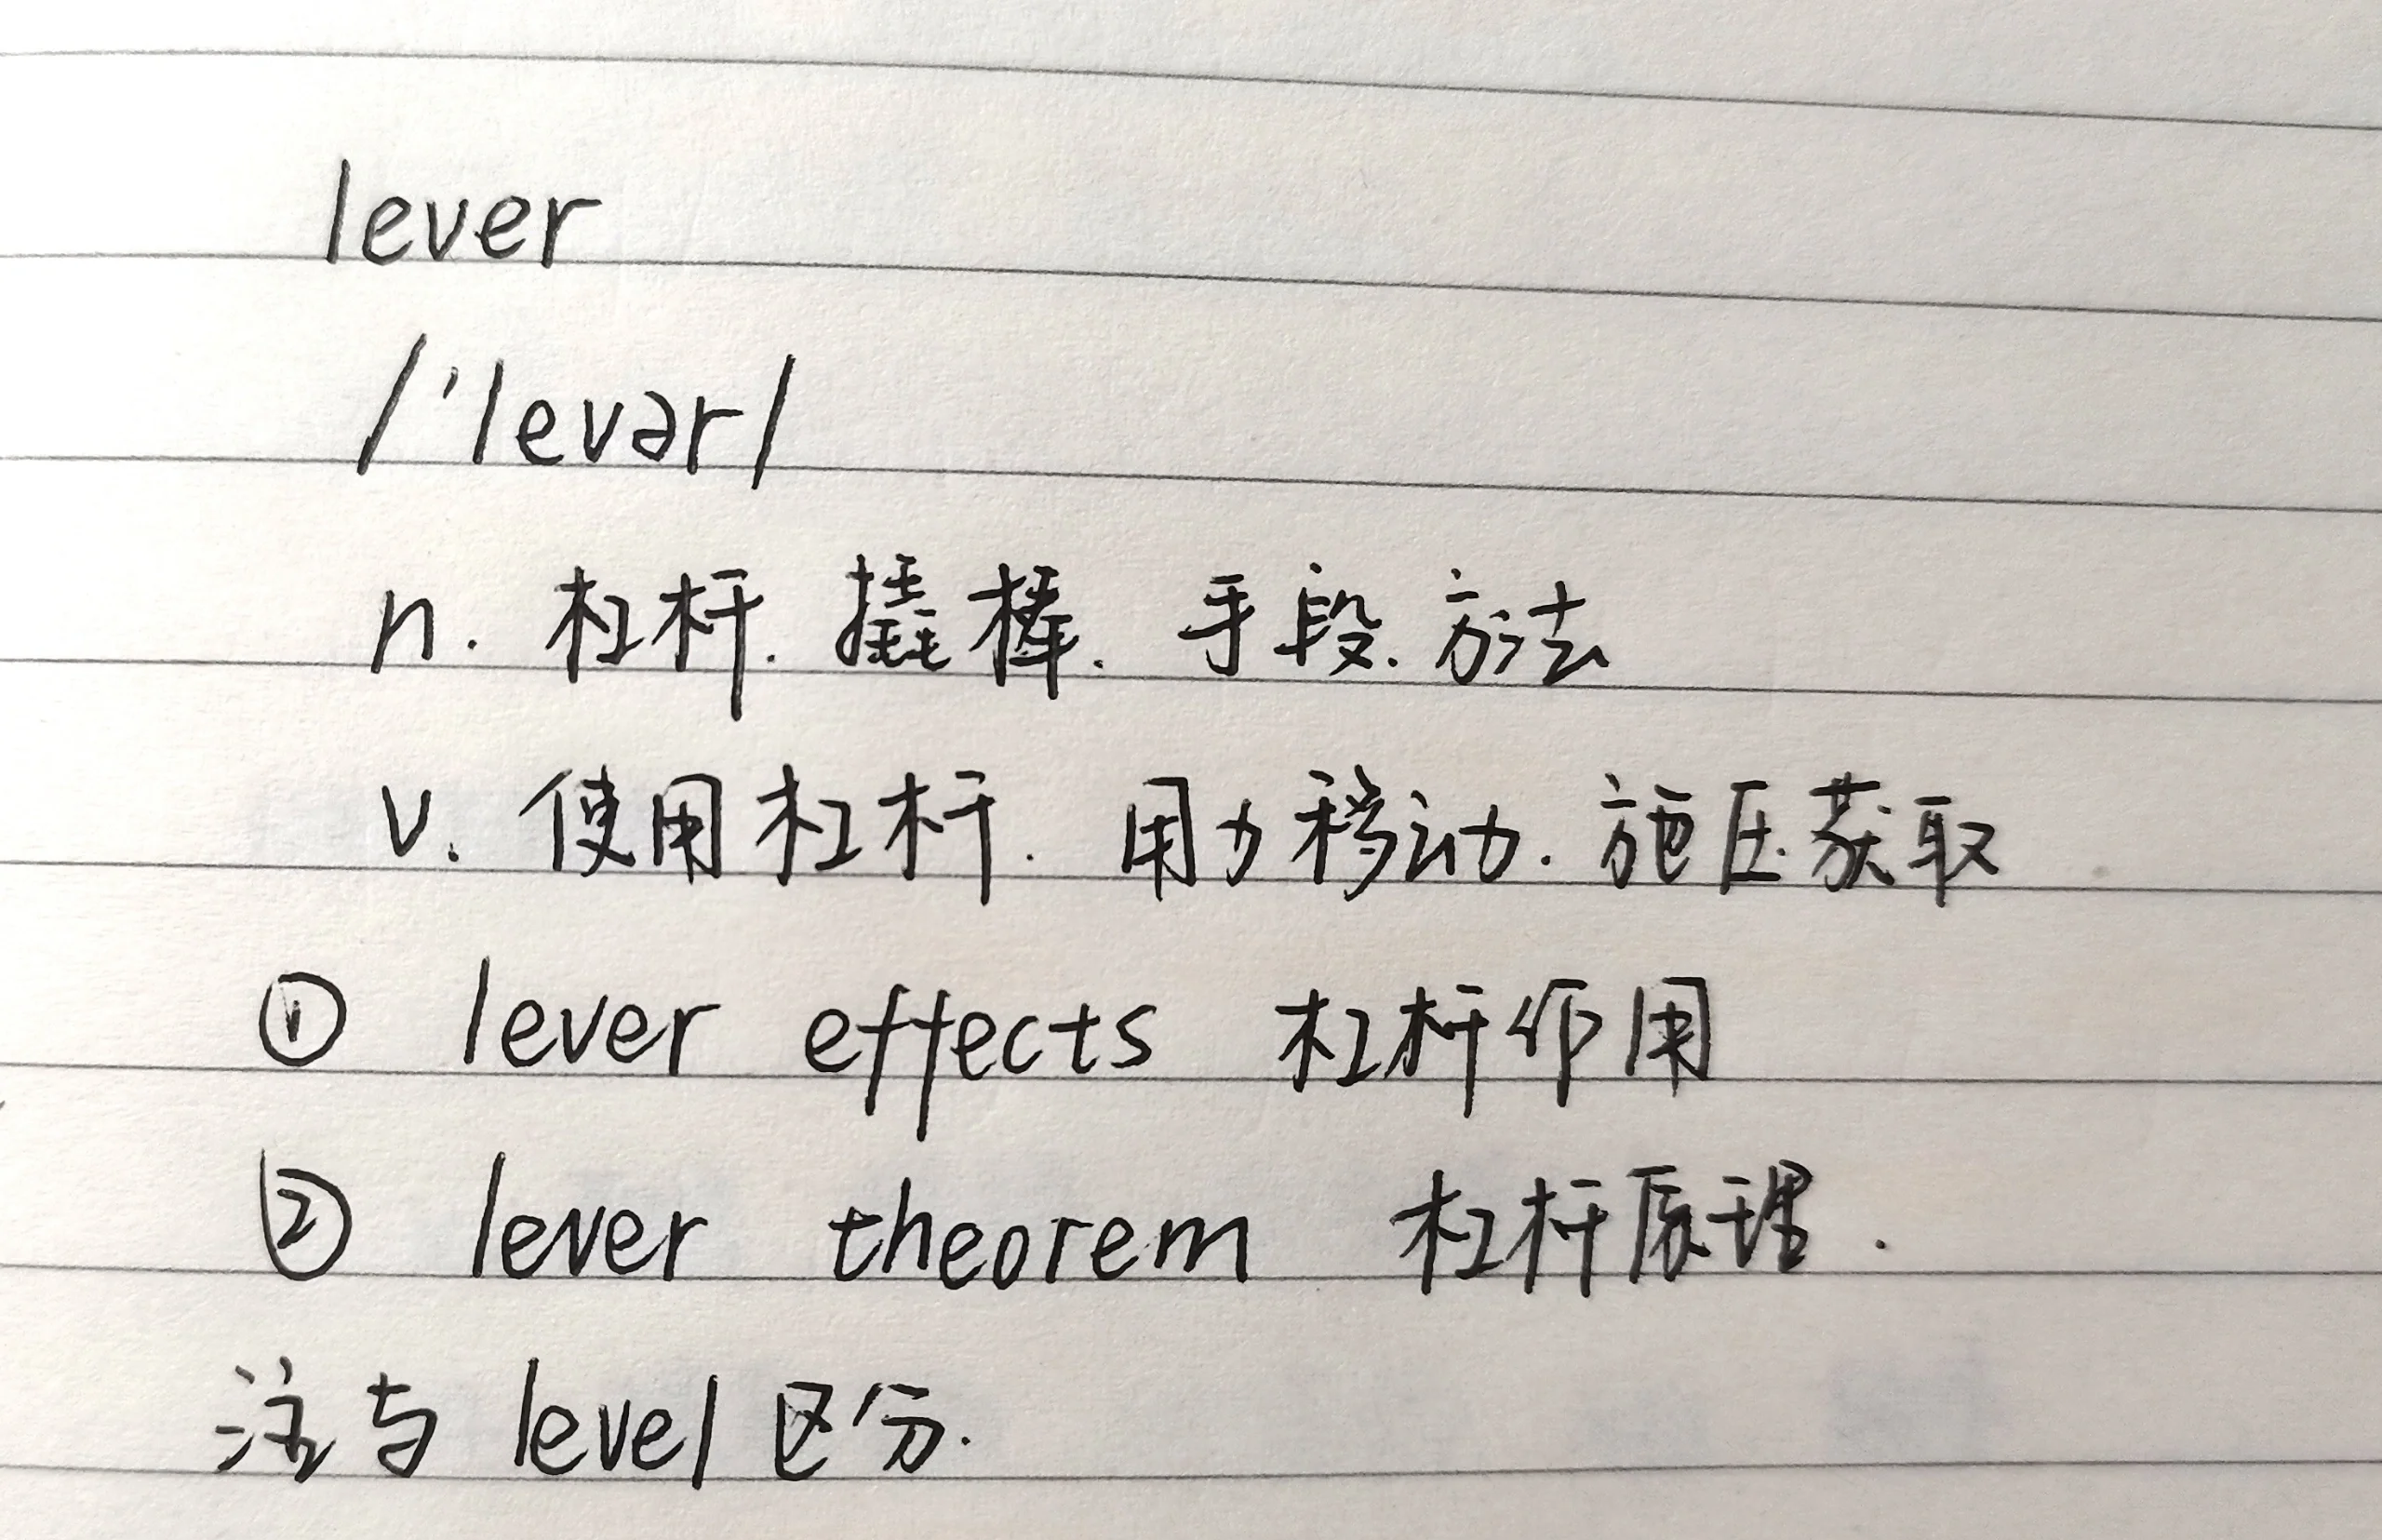 lever
/'levər/
n. 杠杆. 撬棒. 手段. 方法
v. 使用杠杆. 用力移动. 施压获取
① lever effects 杠杆作用
② lever theorem 杠杆原理.
注与 level 区分.